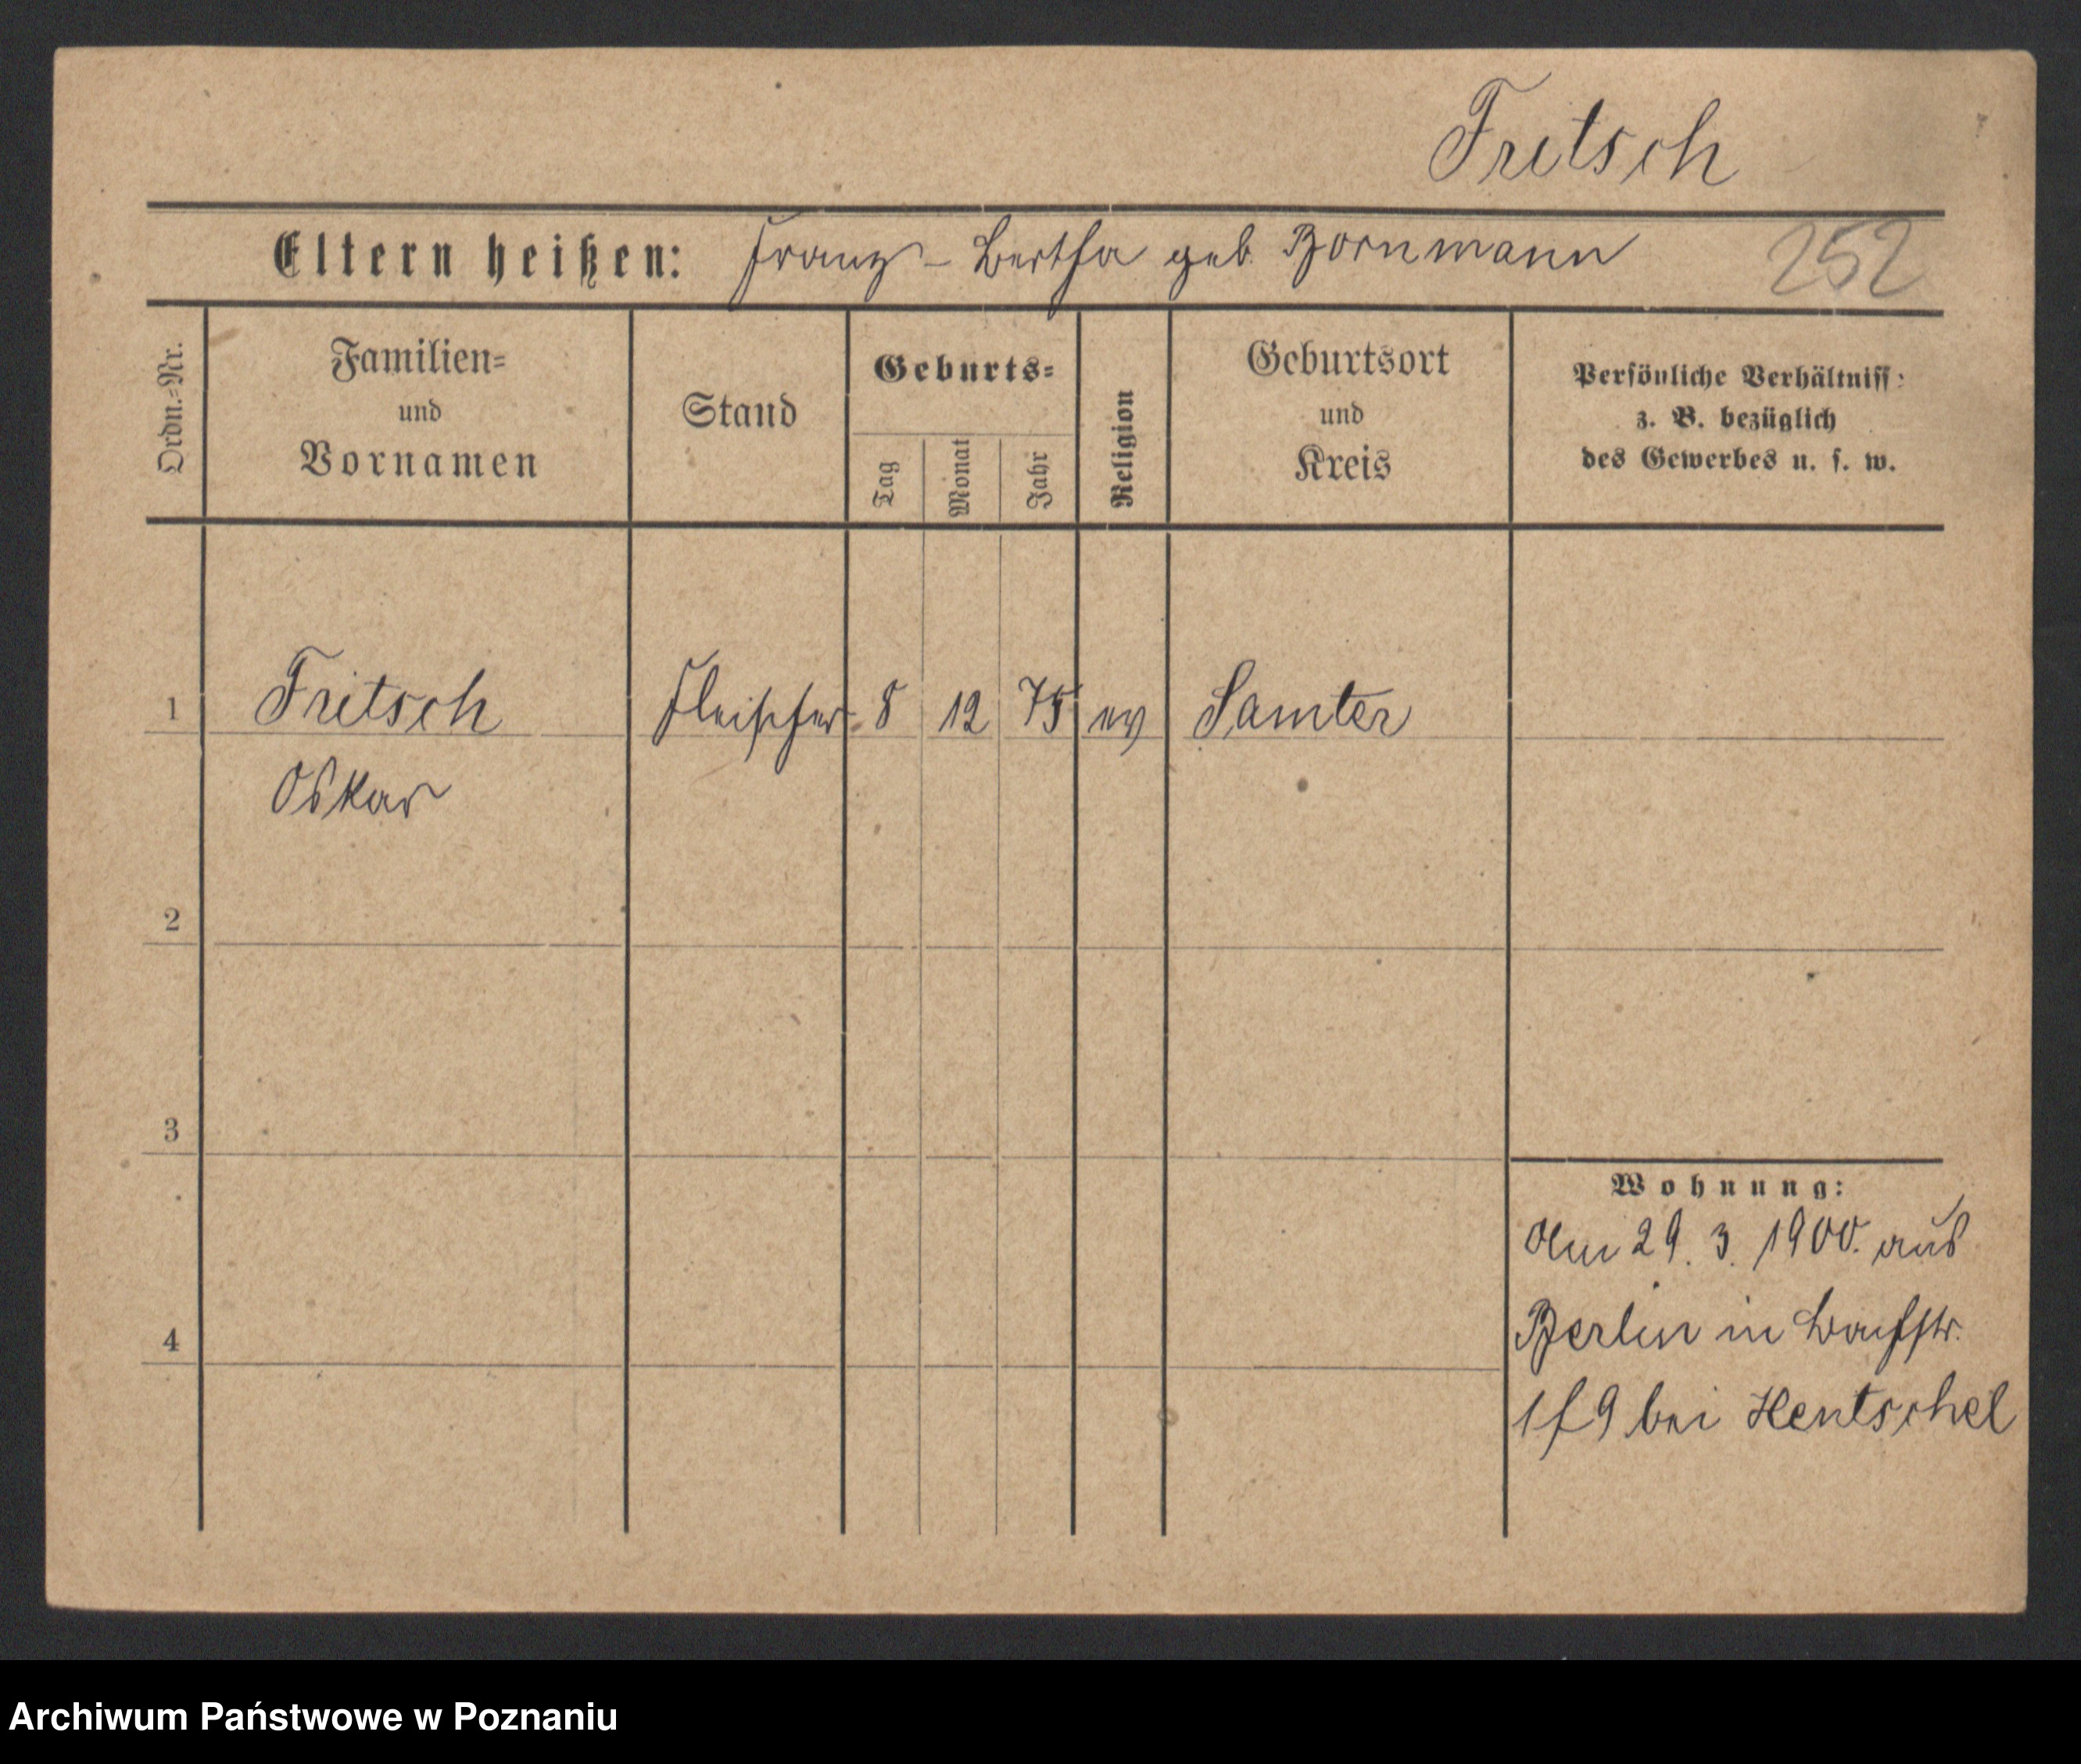 Fritsch
Eltern heißen: Franz - Bertha geb. Bornmann 252
Ordn.-Nr.
Familien-
und
Vornamen
Stand
Geburts-
Tag
Monat
Jahr
Religion
Geburtsort
und
Kreis
Persönliche Verhältniss:
z. B. bezüglich
des Gewerbes u. s. w.
1 Fritsch Fleischer 8 12 75 ev Samter
Oskar
2
3
4
Wohnung:
Am 29. 3. 1900. aus
Berlin in
bei Hentschel
Archiwum Państwowe w Poznaniu